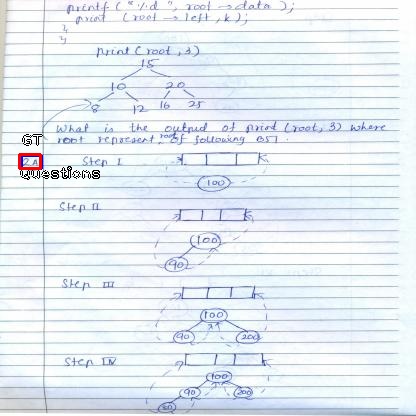 printf ("%d ", root → data );
print (root → left , k);
}
}
print ( root , 3)
15
10 20
8 12 16 25
What is the output of print (root, 3) where
root represent, root of following BST.
GT
2A Step I
Questions
100
Step II
100
90
Step III
100
90 200
Step IV
100
90 200
80